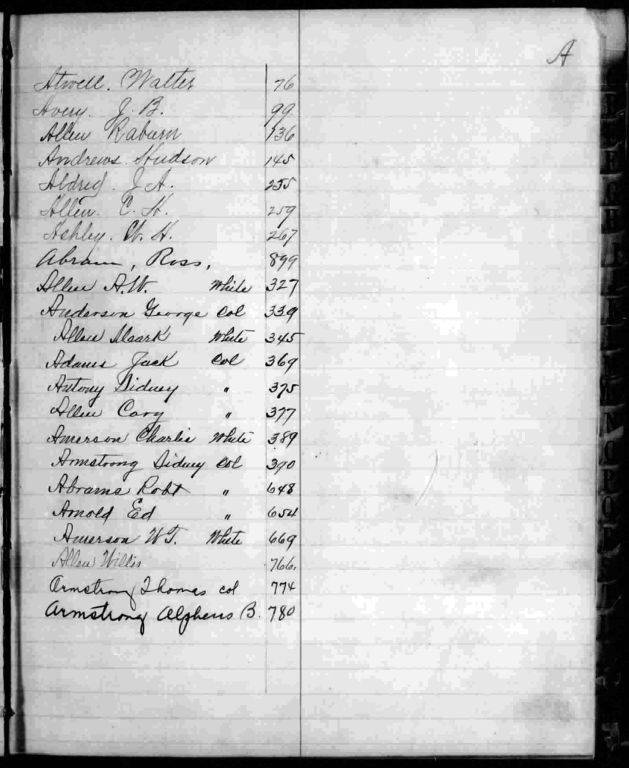 A
Atwell. Walter 76
Avery. J. B. 99
Allen Raburn 136
Andrews Hudson 145
Aldred. J. A. 255
Allen. C. H. 259
Ashley. W. H. 267
Abram, Ross, 899
Allen A.W. White 327
Anderson George Col 339
Allen Mark White 345
Adams Jack Col 369
Antony Sidney " 375
Allen Cary " 377
Amerson Charlie White 389
Armstrong Sidney Col 390
Abrams Robt " 648
Arnold Ed " 654
Amerson W.T. White 669
Allen Willis 766.
Armstrong Thomas col 774
Armstrong Alpheus B. 780